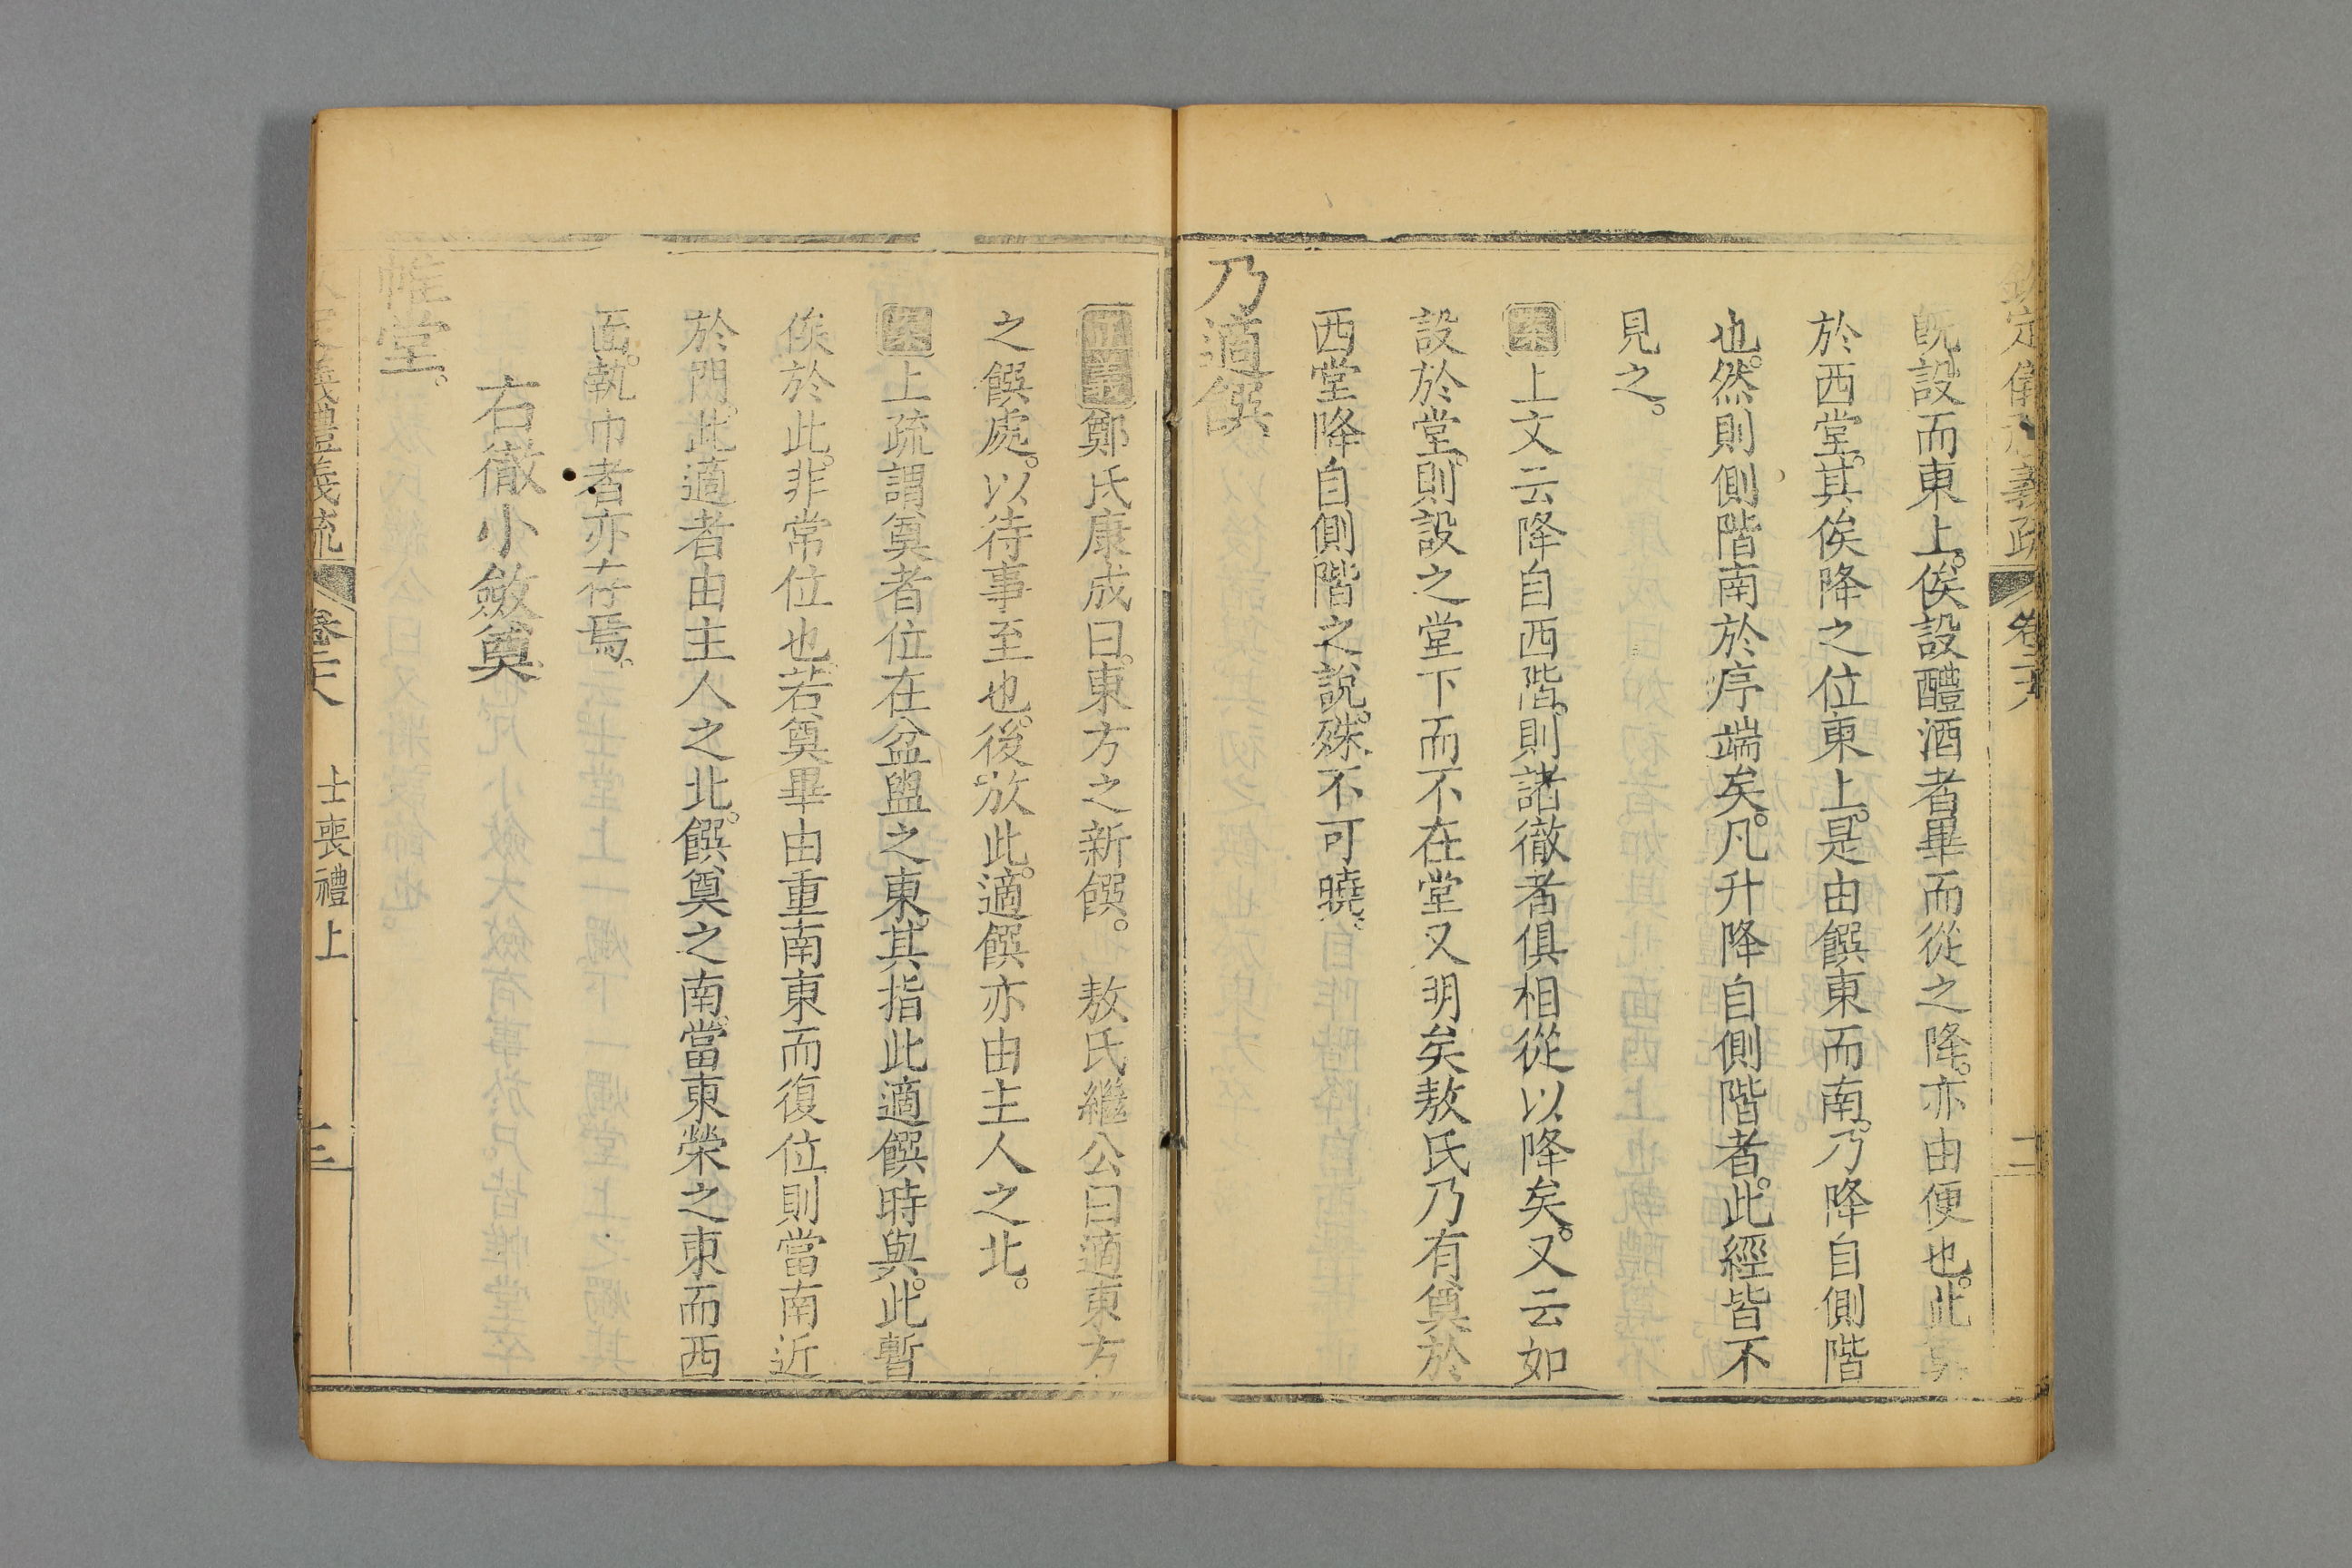 欽定儀禮義疏 卷二十八 二
既設而東上。俟設醴酒者畢而從之降。亦由便也。此奠
於西堂。其俟降之位東上。是由饌東而南。乃降自側階
也。然則側階南於序端矣。凡升降自側階者。此經皆不
見之。
案上文云降自西階。則諸徹者俱相從以降矣。又云如
設於堂。則設之堂下而不在堂又明矣敖氏乃有奠於
西堂降自側階之說。殊不可曉。
乃適饌
正義鄭氏康成曰。東方之新饌。 敖氏繼公曰適東方
之饌處。以待事至也。後放此。適饌亦由主人之北。
案上疏謂奠者位在盆盥之東。其指此適饌時與。此暫
俟於此。非常位也。若奠畢由重南東而復位則當南近
於門。此適者由主人之北。饌奠之南當東榮之東而西
面。執巾者亦存焉。
右徹小斂奠
帷堂。
欽定儀禮義疏 卷二十八 士喪禮上 三